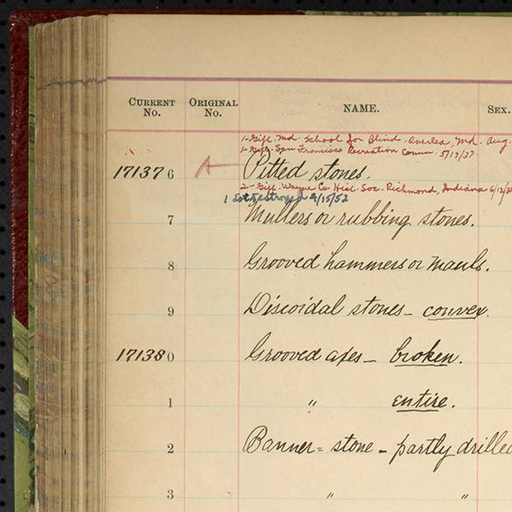 CURRENT No. ORIGINAL No. NAME. SEX.
1-Gift. Md. School for Blind. Overlea, Md. Aug.
1-Gift. San Francisco Recreation Comm. 5/19/37.
17137 6 Pitted stones.
2-Gift. Wayne Co. Hist. Soc. Richmond, Indiana 6/12/
1 destroyed 4/15/52
7 Mullers or rubbing stones.
8 Grooved hammers or mauls.
9 Discoidal stones - convex.
17138 0 Grooved axes - broken.
1 " entire.
2 Banner = stone - partly drilled
3 " "